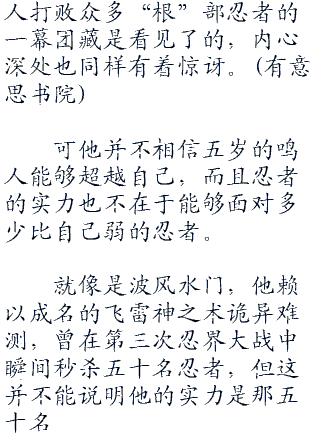 人打败众多“根”部忍者的
一幕团藏是看见了的，内心
深处也同样有着惊讶。(有意
思书院)
可他并不相信五岁的鸣
人能够超越自己，而且忍者
的实力也不在于能够面对多
少比自己弱的忍者。
就像是波风水门，他赖
以成名的飞雷神之术诡异难
测，曾在第三次忍界大战中
瞬间秒杀五十名忍者，但这
并不能说明他的实力是那五
十名